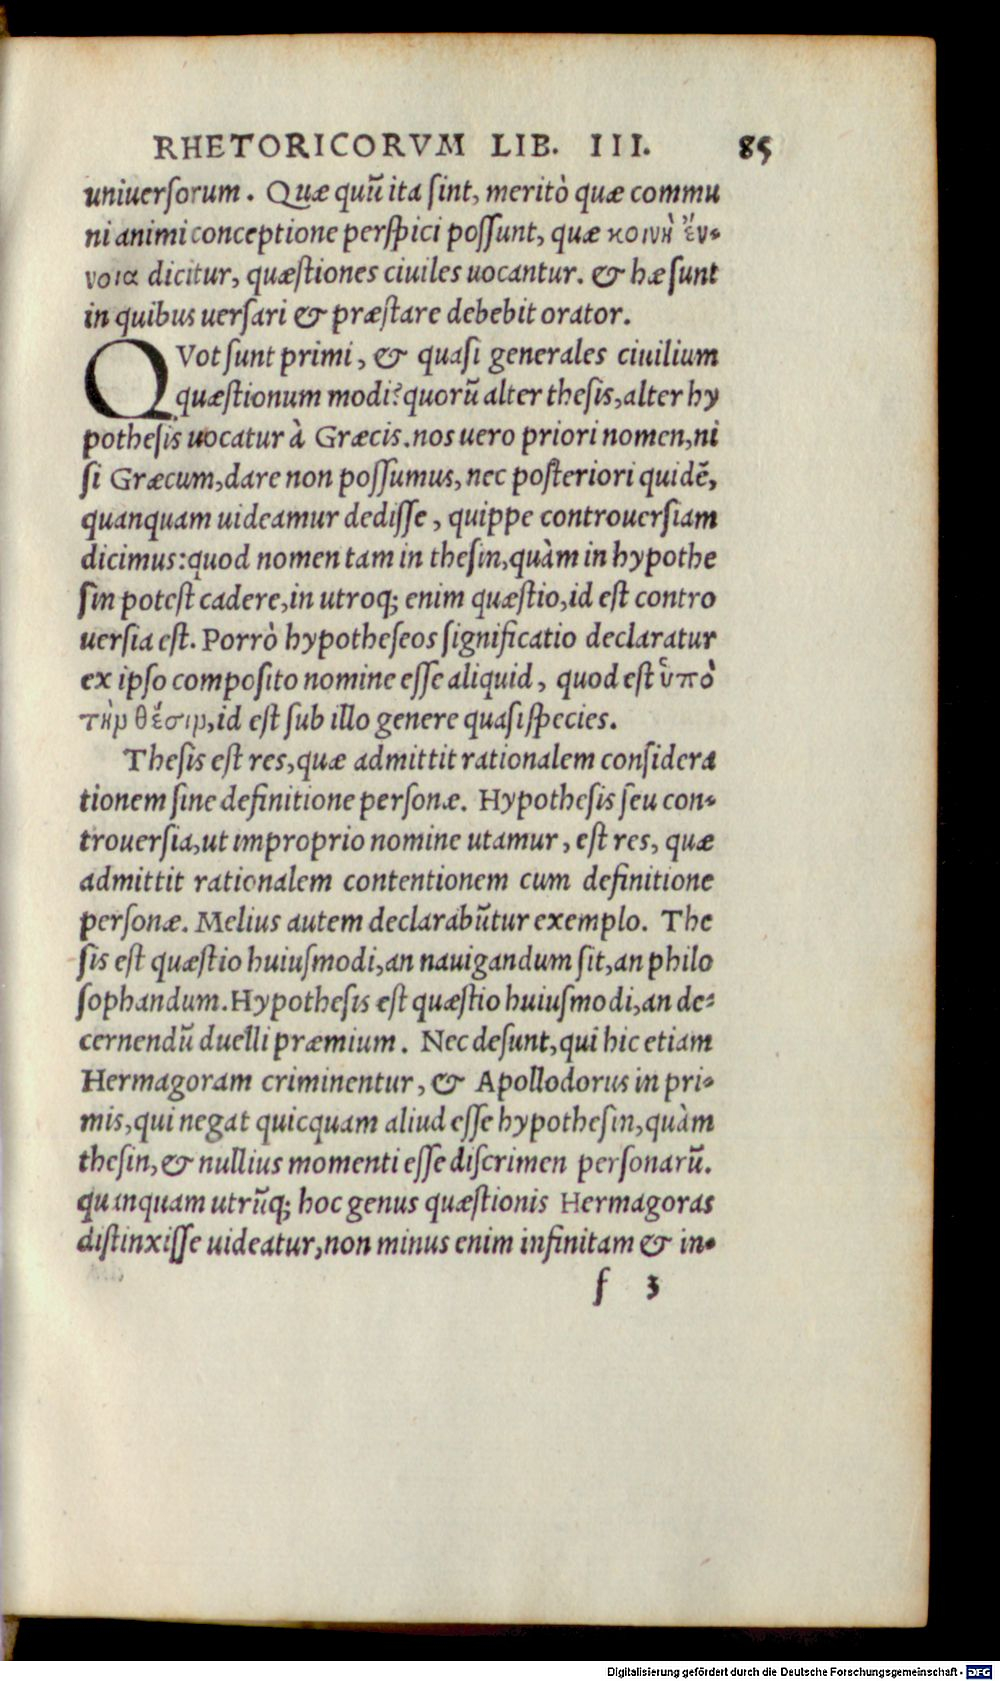 RHETORICORVM LIB. III. 85
uniuersorum. Quæ quũ ita sint, meritò quæ commu
ni animi conceptione perspici possunt, quæ κοινὴ ἔν-
νοια dicitur, quæstiones ciuiles uocantur. & hæ sunt
in quibus uersari & præstare debebit orator.
QVot sunt primi, & quasi generales ciuilium
quæstionum modi? quorũ alter thesis, alter hy
pothesis uocatur à Græcis. nos uero priori nomen, ni
si Græcum, dare non possumus, nec posteriori quidẽ,
quanquam uideamur dedisse, quippe controuersiam
dicimus: quod nomen tam in thesin, quàm in hypothe
sin potest cadere, in utroq; enim quæstio, id est contro
uersia est. Porrò hypotheseos significatio declaratur
ex ipso composito nomine esse aliquid, quod est ὑπὸ
τὴν θέσιν, id est sub illo genere quasi species.
Thesis est res, quæ admittit rationalem considera
tionem sine definitione personæ. Hypothesis seu con-
trouersia, ut improprio nomine utamur, est res, quæ
admittit rationalem contentionem cum definitione
personæ. Melius autem declarabũtur exemplo. The
sis est quæstio huiusmodi, an nauigandum sit, an philo
sophandum. Hypothesis est quæstio huiusmodi, an de-
cernendũ duelli præmium. Nec desunt, qui hic etiam
Hermagoram criminentur, & Apollodorus in pri-
mis, qui negat quicquam aliud esse hypothesin, quàm
thesin, & nullius momenti esse discrimen personarũ.
quanquam utrũq; hoc genus quæstionis Hermagoras
distinxisse uideatur, non minus enim infinitam & in-
f 3
Digitalisierung gefördert durch die Deutsche Forschungsgemeinschaft - DFG